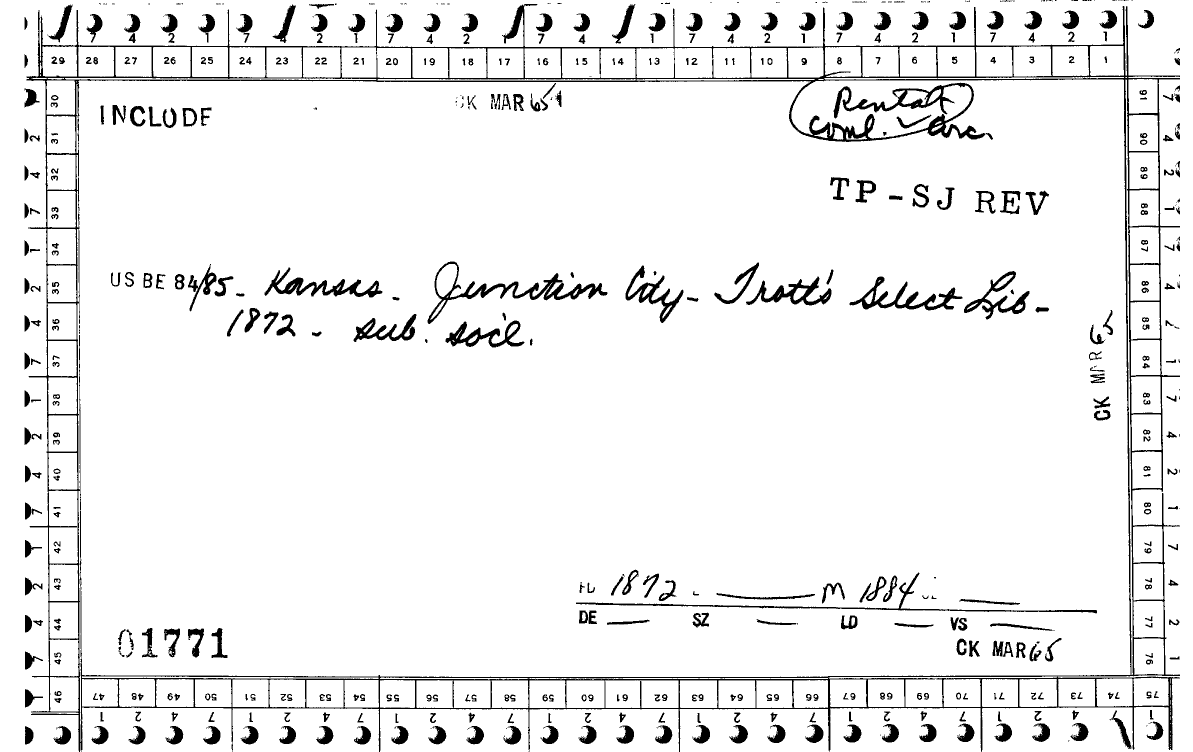 7 4 2 1 7 4 2 1 7 4 2 1 7 4 2 1 7 4 2 1 7 4 2 1 7 4 2 1
29 28 27 26 25 24 23 22 21 20 19 18 17 16 15 14 13 12 11 10 9 8 7 6 5 4 3 2 1
INCLUDE
CK MAR 65
Rental
coml. circ.
TP-SJ REV
US BE 84/85- Kansas- Junction City- Trott's Select Lib-
1872- sub. socl.
CK MAR 65
FD 1872 M 1884
DE SZ LD VS
CK MAR 65
01771
30 31 32 33 34 35 36 37 38 39 40 41 42 43 44 45 46
91 90 89 88 87 86 85 84 83 82 81 80 79 78 77 76 75
47 48 49 50 51 52 53 54 55 56 57 58 59 60 61 62 63 64 65 66 67 68 69 70 71 72 73 74
1 2 4 7 1 2 4 7 1 2 4 7 1 2 4 7 1 2 4 7 1 2 4 7 1 2 4 7